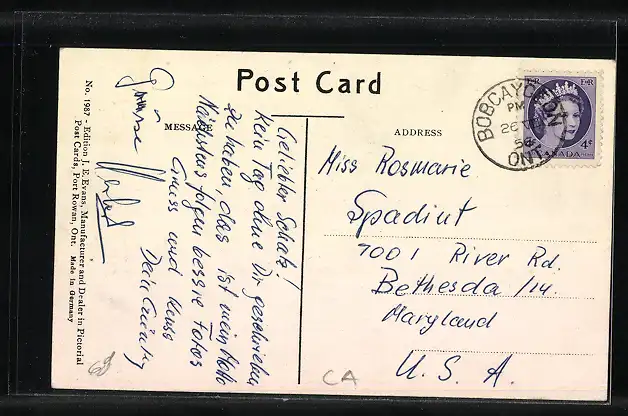 Post Card
MESSAGE
ADDRESS
Geliebter Schatz!
Kein Tag ohne Dir geschrieben
zu haben, das ist mein Motto
Nächstens folgen bessre Fotos
Gruss und Kuss
Dein
Grüsse
Miss Rosmarie
Spadint
7001 River Rd.
Bethesda /14.
Maryland
U. S. A.
BOBCAYGEON
PM
ONT.
CANADA
4¢
No. 1987 - Edition J. E. Evans, Manufacturer and Dealer in Pictorial
Post Cards, Port Rowan, Ont. Made in Germany
CA